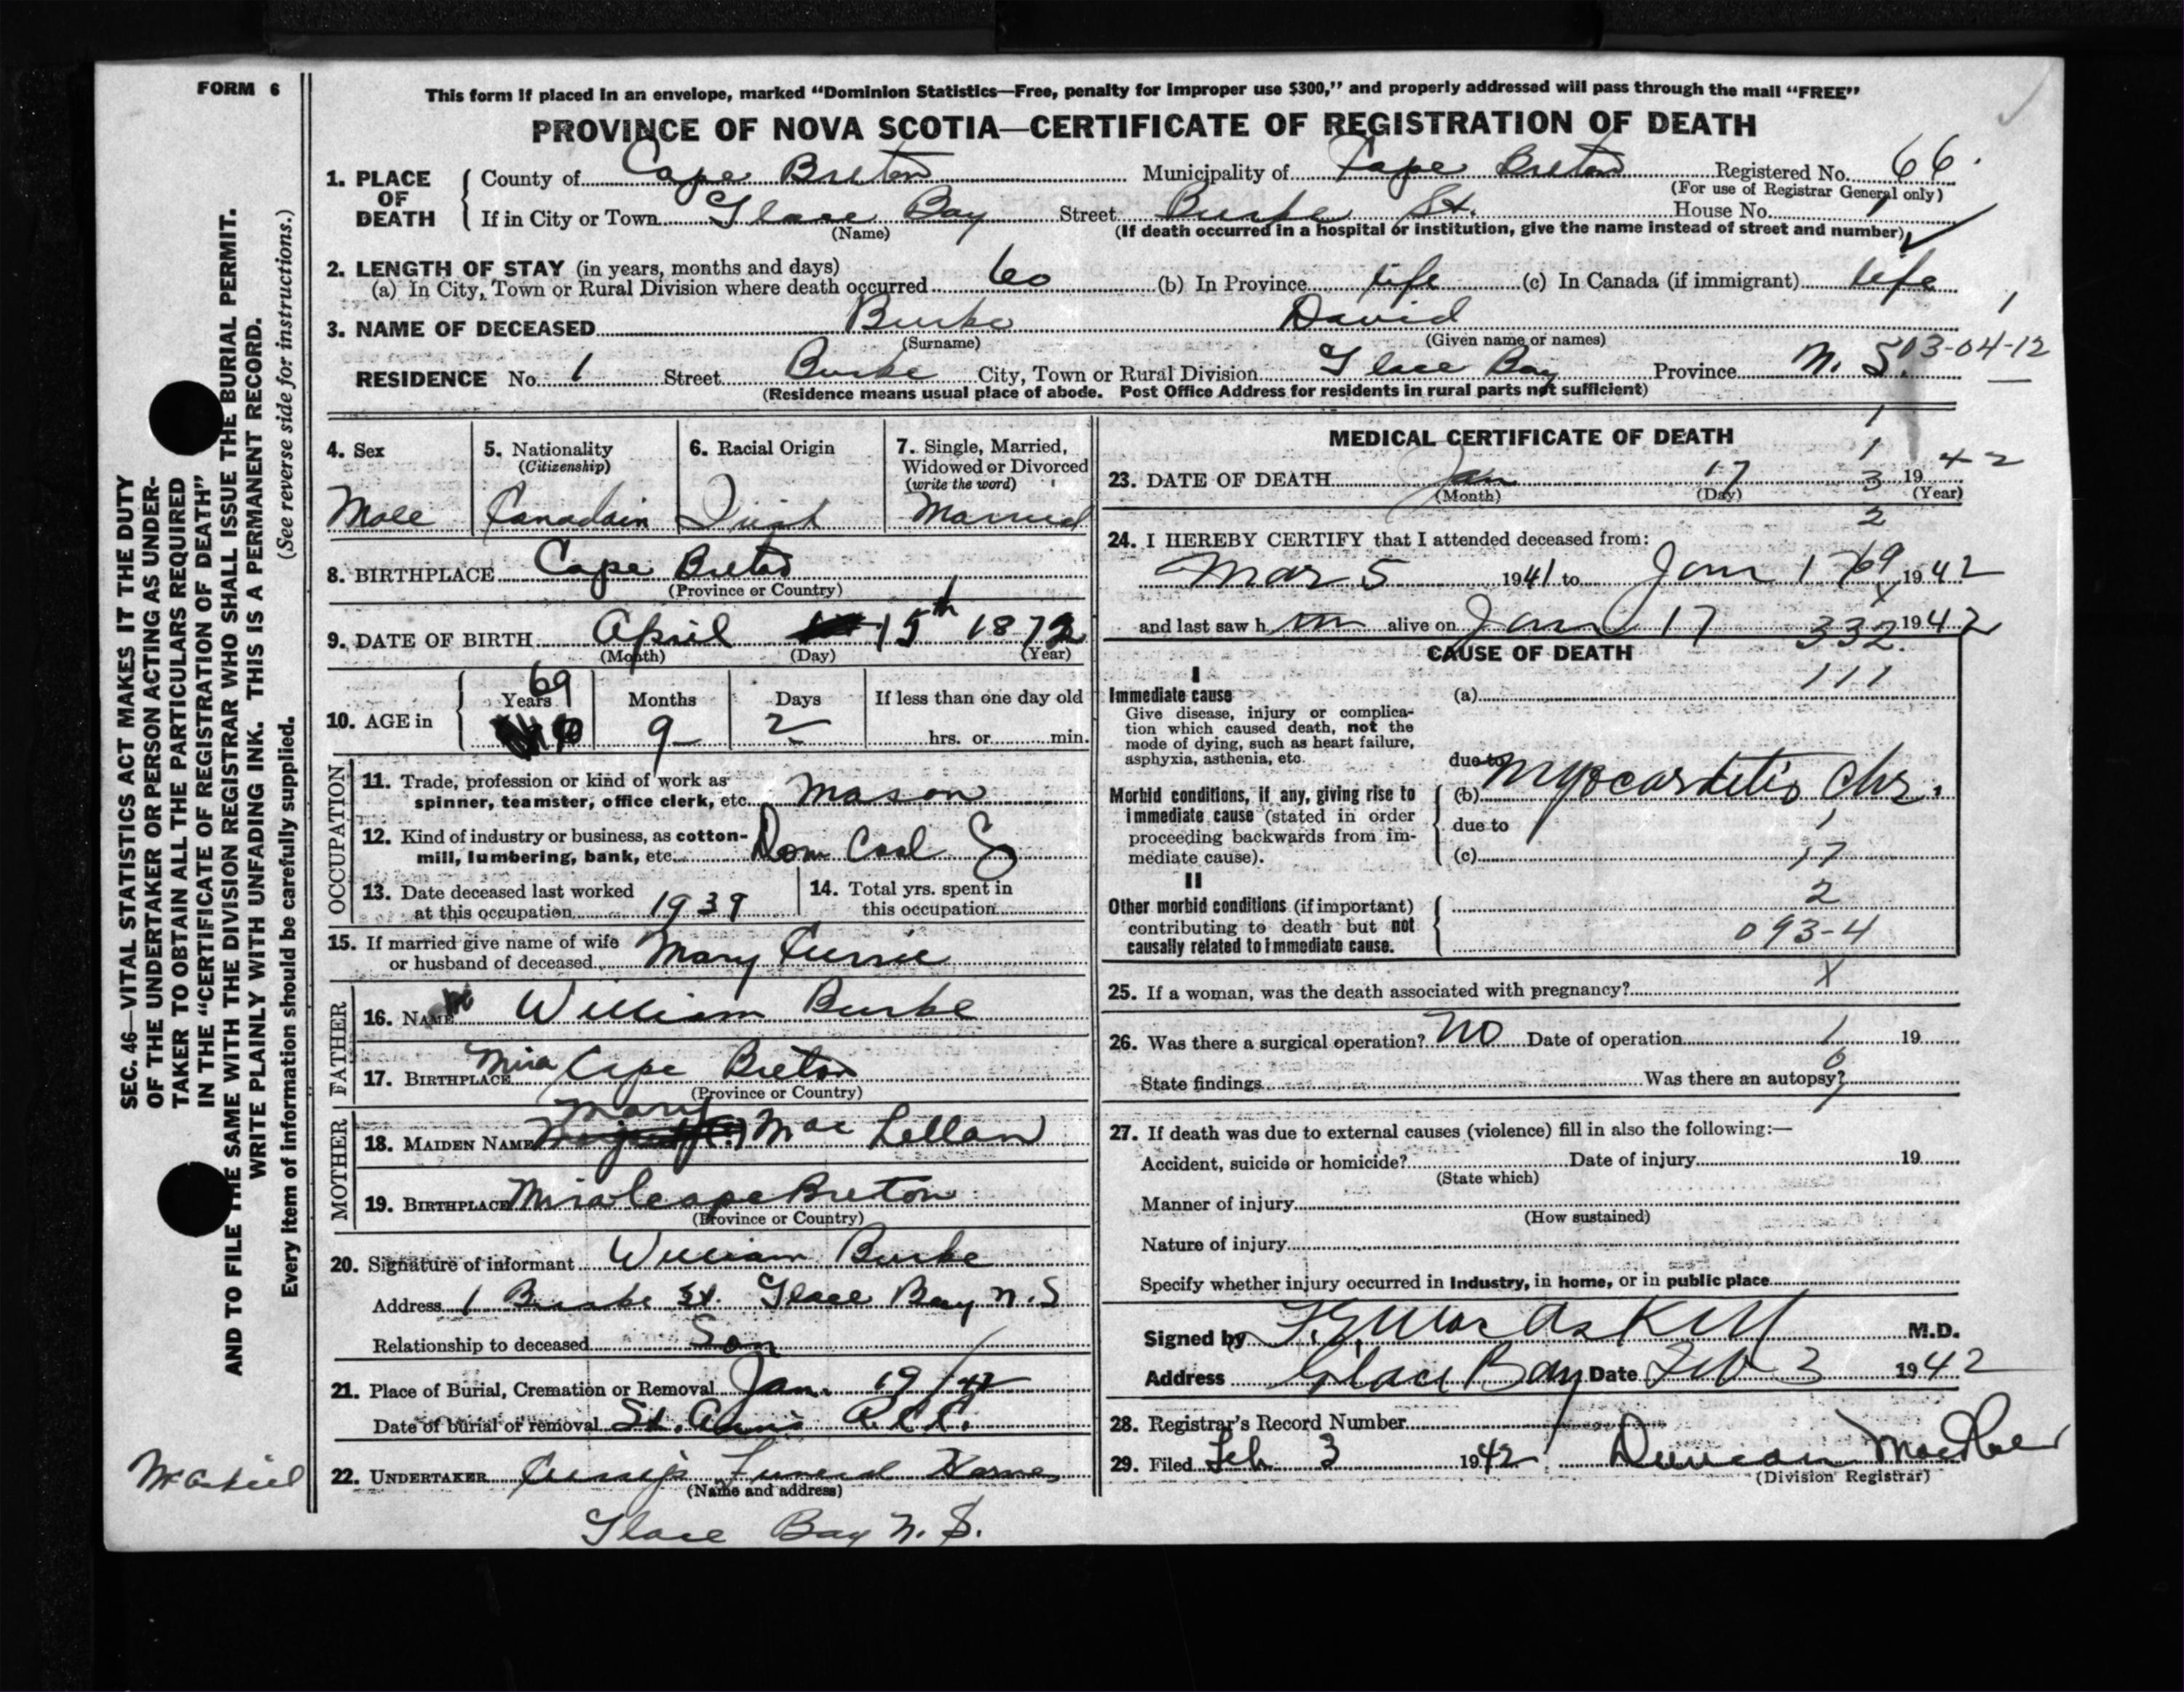 FORM 6
This form if placed in an envelope, marked “Dominion Statistics—Free, penalty for improper use $300,” and properly addressed will pass through the mail “FREE”
PROVINCE OF NOVA SCOTIA—CERTIFICATE OF REGISTRATION OF DEATH
1. PLACE OF DEATH County of Cape Breton Municipality of Cape Breton Registered No. 66.
(For use of Registrar General only)
If in City or Town Glace Bay Street Burke St. House No. 1
(Name) (If death occurred in a hospital or institution, give the name instead of street and number)
2. LENGTH OF STAY (in years, months and days)
(a) In City, Town or Rural Division where death occurred 60 (b) In Province life (c) In Canada (if immigrant) life
1
3. NAME OF DECEASED Burke David
(Surname) (Given name or names)
03-04-12
RESIDENCE No. 1 Street Burke City, Town or Rural Division Glace Bay Province N. S.
(Residence means usual place of abode. Post Office Address for residents in rural parts not sufficient)
4. Sex
Male
5. Nationality
(Citizenship)
Canadain
6. Racial Origin
Irish
7. Single, Married,
Widowed or Divorced
(write the word)
Married
8. BIRTHPLACE Cape Breton
(Province or Country)
9. DATE OF BIRTH April 15th 1872
(Month) (Day) (Year)
10. AGE in
Years 69
Months 9
Days 2
If less than one day old
hrs. or min.
OCCUPATION
11. Trade, profession or kind of work as
spinner, teamster, office clerk, etc. Mason
12. Kind of industry or business, as cotton-
mill, lumbering, bank, etc. Dom Coal Co
13. Date deceased last worked
at this occupation 1939
14. Total yrs. spent in
this occupation
15. If married give name of wife
or husband of deceased Mary Currie
FATHER
16. NAME William Burke
17. BIRTHPLACE Mira Cape Breton
(Province or Country)
MOTHER
Mary
18. MAIDEN NAME Mac Lellan
19. BIRTHPLACE Mira Cape Breton
(Province or Country)
20. Signature of informant William Burke
Address 1 Burke St. Glace Bay N.S
Relationship to deceased Son
21. Place of Burial, Cremation or Removal Jan. 19/42
Date of burial or removal St. Anns R.C.C.
22. UNDERTAKER Funeral Home
(Name and address)
Glace Bay N. S.
MEDICAL CERTIFICATE OF DEATH
1
1
23. DATE OF DEATH Jan 17 1942
(Month) (Day) (Year)
3
2
24. I HEREBY CERTIFY that I attended deceased from:
Mar 5 1941 to Jan 17 1942
69
x
and last saw h im alive on Jan 17 1942
332.
CAUSE OF DEATH
111
I
Immediate cause (a)
Give disease, injury or complica-
tion which caused death, not the
mode of dying, such as heart failure,
asphyxia, asthenia, etc.
due to
Morbid conditions, if any, giving rise to
immediate cause (stated in order
proceeding backwards from im-
mediate cause).
(b) Myocarditis Chr.
due to 1
(c) 17
II
2
Other morbid conditions (if important)
contributing to death but not
causally related to immediate cause.
093-4
x
25. If a woman, was the death associated with pregnancy?
26. Was there a surgical operation? NO Date of operation 1 19
State findings Was there an autopsy?
27. If death was due to external causes (violence) fill in also the following:—
Accident, suicide or homicide? Date of injury 19
(State which)
Manner of injury
(How sustained)
Nature of injury
Specify whether injury occurred in Industry, in home, or in public place
Signed by M.D.
Address Glace Bay Date Feb 3 1942
28. Registrar's Record Number
29. Filed Feb. 3 1942 Duncan MacRae
(Division Registrar)
SEC. 46—VITAL STATISTICS ACT MAKES IT THE DUTY
OF THE UNDERTAKER OR PERSON ACTING AS UNDER-
TAKER TO OBTAIN ALL THE PARTICULARS REQUIRED
IN THE “CERTIFICATE OF REGISTRATION OF DEATH”
AND TO FILE THE SAME WITH THE DIVISION REGISTRAR WHO SHALL ISSUE THE BURIAL PERMIT.
WRITE PLAINLY WITH UNFADING INK. THIS IS A PERMANENT RECORD.
Every item of information should be carefully supplied. (See reverse side for instructions.)